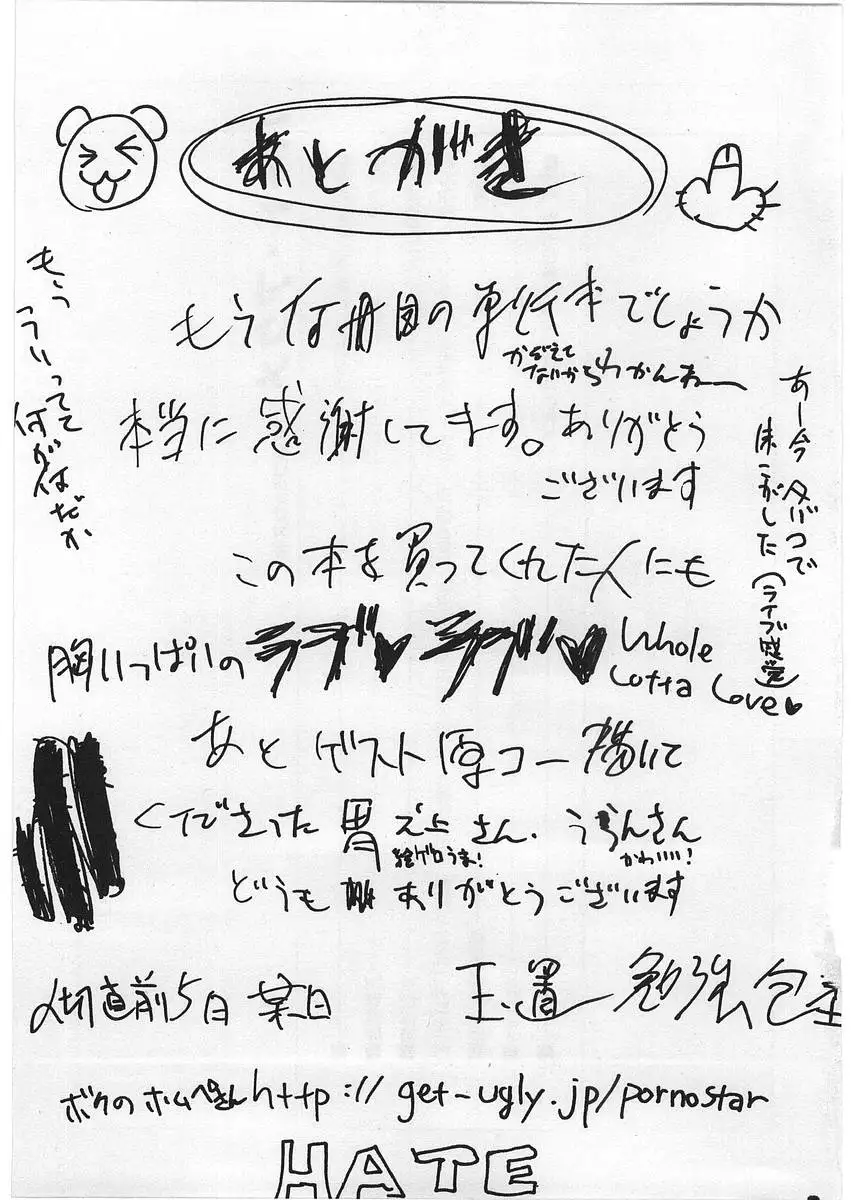 あとがき
もう何冊目の単行本でしょうか
かぞえて
ないからわかんねー
本当に感謝してます。ありがとう
ございます
この本を買ってくれた人にも
胸いっぱいの ラブ♥ ラブ♥ Whole
Lotta Love♥
あとゲスト原コー描いて
くださった 胃之上さん. うらんさん
絵ゲロうま! かわいい!
どうも ありがとうございます
〆切直前5日
玉置勉強
ボクのホムペさん http://get-ugly.jp/pornostar
HATE
もう
こういってて
何が何だか
あー今タバコで
床こがした(ライブ感覚)